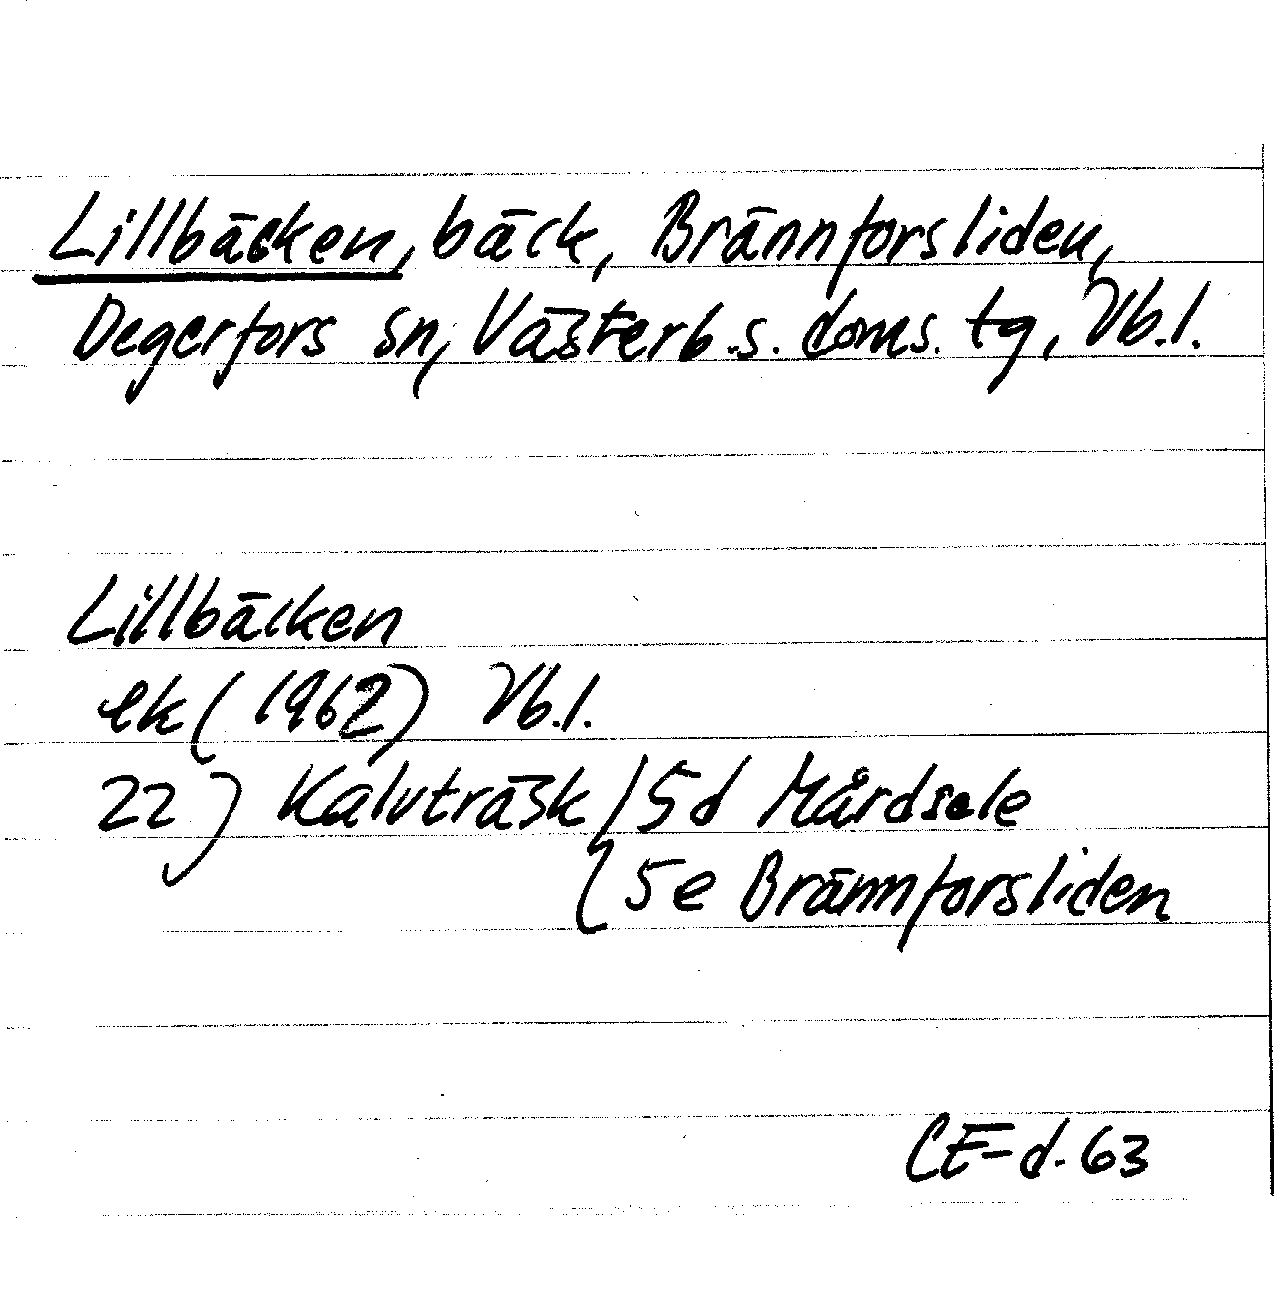 Lillbäcken, bäck, Brännforsliden,
Degerfors sn, Västerb.s. doms. tg, Vb.l.
Lillbäcken
ek (1962) Vb.l.
22) Kalvträsk / 5d Mårdsele
( 5e Brännforsliden
CE-d. 63